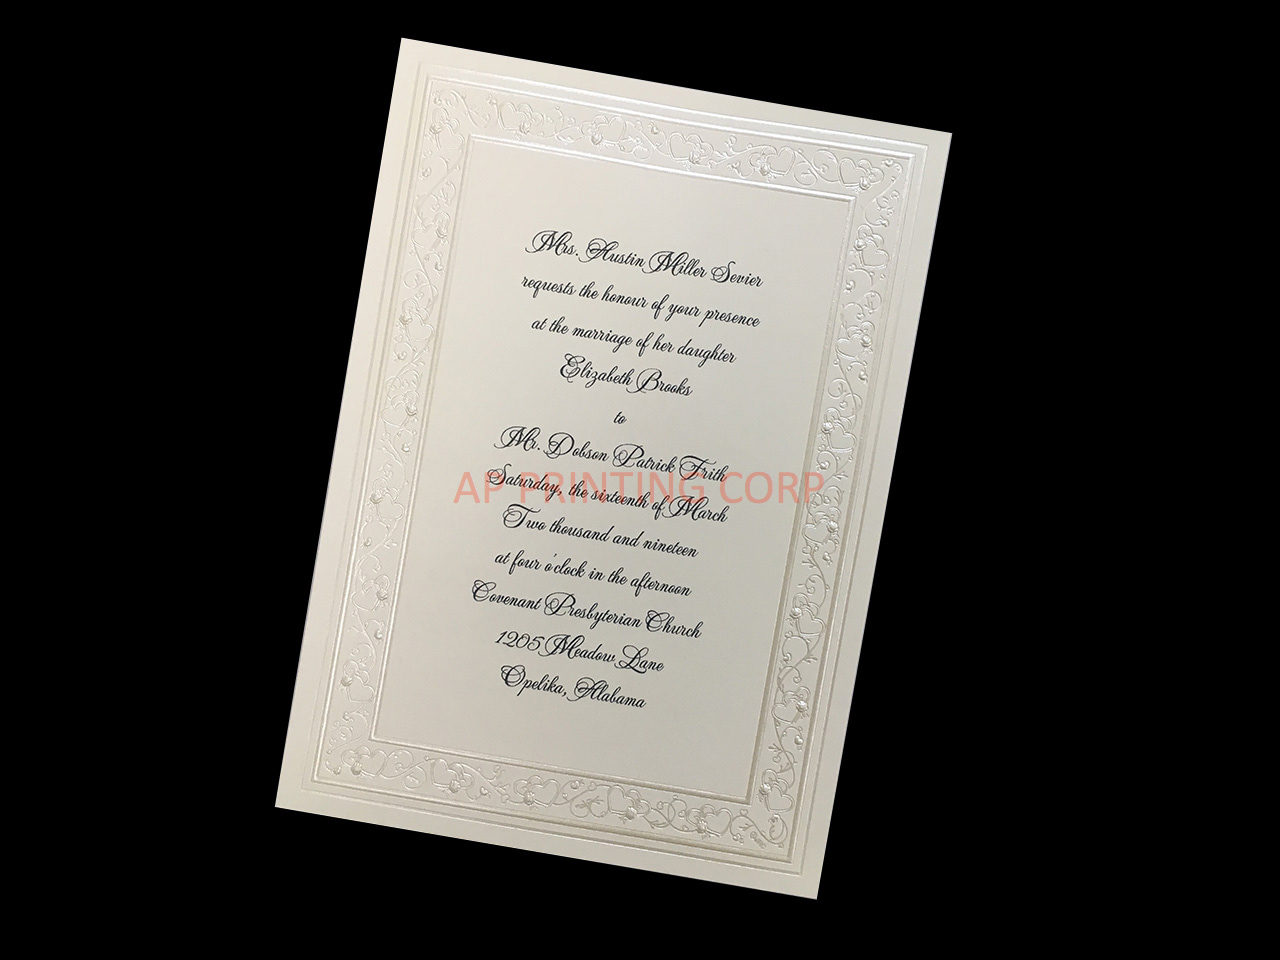 Mrs. Austin Miller Sevier
requests the honour of your presence
at the marriage of her daughter
Elizabeth Brooks
to
Mr. Dobson Patrick Frith
AP PRINTING CORP
Saturday, the sixteenth of March
Two thousand and nineteen
at four o'clock in the afternoon
Covenant Presbyterian Church
1205 Meadow Lane
Opelika, Alabama